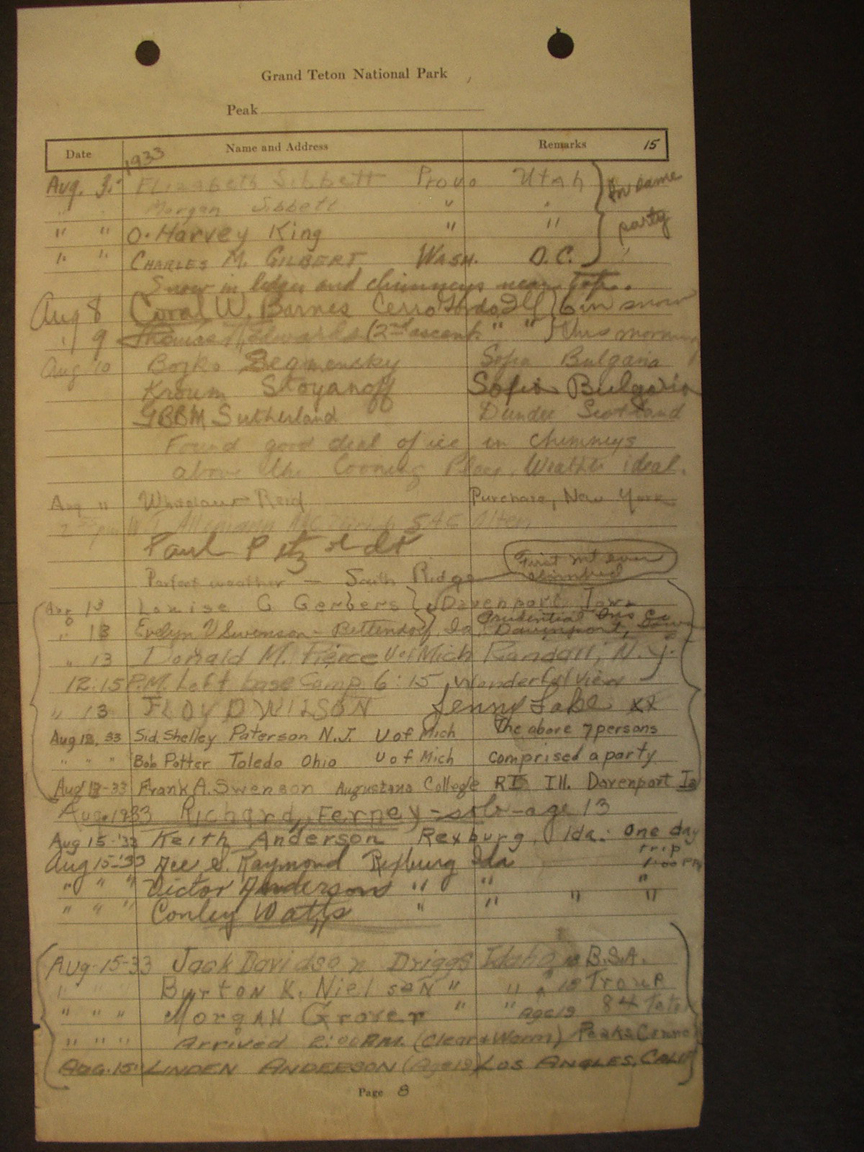 Grand Teton National Park
Peak
Date 1933 Name and Address Remarks 15
Aug. 3. Elizabeth Sibbett Provo Utah In same
" " Morgan Sibbett " " party
" " O. Harvey King " "
" " CHARLES M. GILBERT WASH. D.C. "
Snow in ledges and chimneys near top.
Aug 8 Coral W. Barnes Cerro Gordo, Ill 6 in snow
" 9 Thomas Edwards (2nd ascent " " this morning
Aug 10 Bojko Sofia Bulgaria
Kroum Stoyanoff Sofia Bulgaria
GBBM Sutherland Dundee Scotland
Found good deal of ice in chimneys
above the Cooning Place. Weather ideal.
Aug " Reid Purchase, New York
Paul Petzoldt
Perfect weather — South Ridge First mt ever climbed
Aug 13 Louise G Gerbers Davenport, Iowa
" 13 Evelyn V Swenson - Bettendorf Ia. Prudential Ins Co Davenport, Iowa
" 13 Donald M. Pierce U of Mich Randall, N.Y.
12.15 P.M. Left base Camp 6:15, Wonderful view
" 13 FLOYD WILSON Jenny Lake XX
Aug 13, 33 Sid Shelley Paterson N.J. U of Mich The above 7 persons
" " " Bob Potter Toledo Ohio U of Mich comprised a party
Aug 13-33 Frank A. Swenson Augustana College R.I. Ill. Davenport Ia
Aug 1933 Richard Ferney - solo - age 13
Aug 15-'33 Keith Anderson Rexburg, Ida: One day
trip
Aug 15-'33 S. Raymond Rexburg Ida 1:00 PM
" " " Victor Anderson " " " "
" " " Conley Watts " " " "
Aug-15-33 Jack Davidson Driggs Idaho B.S.A.
" " " Burton K. Nielson " " Troup
" " " Morgan Grover " " Age 19 84 Teton
" " " Arrived 2:00 P.M. (Clear & Warm) Peaks
AUG. 15' LINDEN ANDERSON (Age 19) LOS ANGLES, CALIF
Page 8